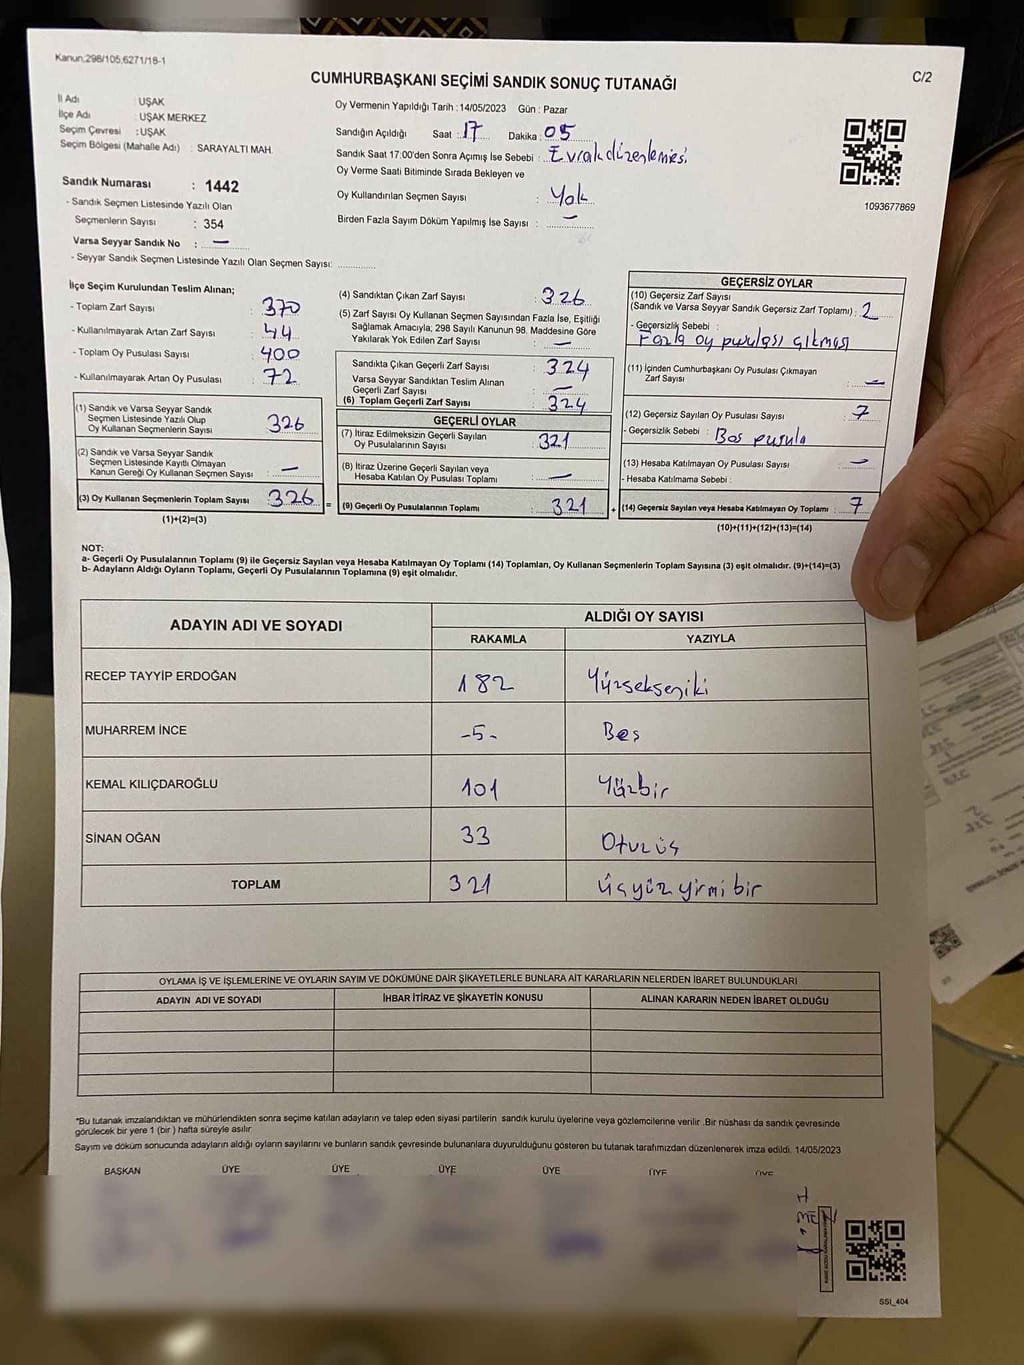 Kanun;298/105;6271/18-1
C/2
CUMHURBAŞKANI SEÇİMİ SANDIK SONUÇ TUTANAĞI
İl Adı : UŞAK
İlçe Adı : UŞAK MERKEZ
Seçim Çevresi : UŞAK
Seçim Bölgesi (Mahalle Adı) : SARAYALTI MAH.
Sandık Numarası : 1442
- Sandık Seçmen Listesinde Yazılı Olan
Seçmenlerin Sayısı : 354
Varsa Seyyar Sandık No : —
- Seyyar Sandık Seçmen Listesinde Yazılı Olan Seçmen Sayısı:
Oy Vermenin Yapıldığı Tarih : 14/05/2023 Gün : Pazar
Sandığın Açıldığı Saat : 17 Dakika : 05
Sandık Saat 17:00'den Sonra Açımış İse Sebebi : Evrak düzenlemesi
Oy Verme Saati Bitiminde Sırada Bekleyen ve
Oy Kullandırılan Seçmen Sayısı : Yok
Birden Fazla Sayım Döküm Yapılmış İse Sayısı : —
1093677869
İlçe Seçim Kurulundan Teslim Alınan;
- Toplam Zarf Sayısı : 370
- Kullanılmayarak Artan Zarf Sayısı : 44
- Toplam Oy Pusulası Sayısı : 400
- Kullanılmayarak Artan Oy Pusulası : 72
(1) Sandık ve Varsa Seyyar Sandık
Seçmen Listesinde Yazılı Olup
Oy Kullanan Seçmenlerin Sayısı : 326
(2) Sandık ve Varsa Seyyar Sandık
Seçmen Listesinde Kayıtlı Olmayan
Kanun Gereği Oy Kullanan Seçmen Sayısı : —
(3) Oy Kullanan Seçmenlerin Toplam Sayısı : 326 =
(1)+(2)=(3)
(4) Sandıktan Çıkan Zarf Sayısı : 326
(5) Zarf Sayısı Oy Kullanan Seçmen Sayısından Fazla İse, Eşitliği
Sağlamak Amacıyla; 298 Sayılı Kanunun 98. Maddesine Göre
Yakılarak Yok Edilen Zarf Sayısı : —
Sandıkta Çıkan Geçerli Zarf Sayısı : 324
Varsa Seyyar Sandıktan Teslim Alınan
Geçerli Zarf Sayısı : —
(6) Toplam Geçerli Zarf Sayısı : 324
GEÇERLİ OYLAR
(7) İtiraz Edilmeksizin Geçerli Sayılan
Oy Pusulalarının Sayısı : 321
(8) İtiraz Üzerine Geçerli Sayılan veya
Hesaba Katılan Oy Pusulası Toplamı : —
(9) Geçerli Oy Pusulalarının Toplamı : 321 +
GEÇERSİZ OYLAR
(10) Geçersiz Zarf Sayısı
(Sandık ve Varsa Seyyar Sandık Geçersiz Zarf Toplamı) : 2
- Geçersizlik Sebebi :
Fazla oy pusulası çıkması
(11) İçinden Cumhurbaşkanı Oy Pusulası Çıkmayan
Zarf Sayısı : —
(12) Geçersiz Sayılan Oy Pusulası Sayısı : 7
- Geçersizlik Sebebi : Bos pusula
(13) Hesaba Katılmayan Oy Pusulası Sayısı : —
- Hesaba Katılmama Sebebi :
(14) Geçersiz Sayılan veya Hesaba Katılmayan Oy Toplamı : 7
(10)+(11)+(12)+(13)=(14)
NOT:
a- Geçerli Oy Pusulalarının Toplamı (9) ile Geçersiz Sayılan veya Hesaba Katılmayan Oy Toplamı (14) Toplamları, Oy Kullanan Seçmenlerin Toplam Sayısına (3) eşit olmalıdır. (9)+(14)=(3)
b- Adayların Aldığı Oyların Toplamı, Geçerli Oy Pusulalarının Toplamına (9) eşit olmalıdır.
ADAYIN ADI VE SOYADI
ALDIĞI OY SAYISI
RAKAMLA YAZIYLA
RECEP TAYYİP ERDOĞAN 182 Yüzsekseniki
MUHARREM İNCE -5- Beş
KEMAL KILIÇDAROĞLU 101 Yüzbir
SİNAN OĞAN 33 Otuzüç
TOPLAM 321 Üçyüzyirmibir
OYLAMA İŞ VE İŞLEMLERİNE VE OYLARIN SAYIM VE DÖKÜMÜNE DAİR ŞİKAYETLERLE BUNLARA AİT KARARLARIN NELERDEN İBARET BULUNDUKLARI
ADAYIN ADI VE SOYADI İHBAR İTİRAZ VE ŞİKAYETİN KONUSU ALINAN KARARIN NEDEN İBARET OLDUĞU
*Bu tutanak imzalandıktan ve mühürlendikten sonra seçime katılan adayların ve talep eden siyasi partilerin sandık kurulu üyelerine veya gözlemcilerine verilir .Bir nüshası da sandık çevresinde
görülecek bir yere 1 (bir ) hafta süreyle asılır.
Sayım ve döküm sonucunda adayların aldığı oyların sayılarını ve bunların sandık çevresinde bulunanlara duyurulduğunu gösteren bu tutanak tarafımızdan düzenlenerek imza edildi. 14/05/2023
BAŞKAN ÜYE ÜYE ÜYE ÜYE ÜYE ÜYE
SSI_404